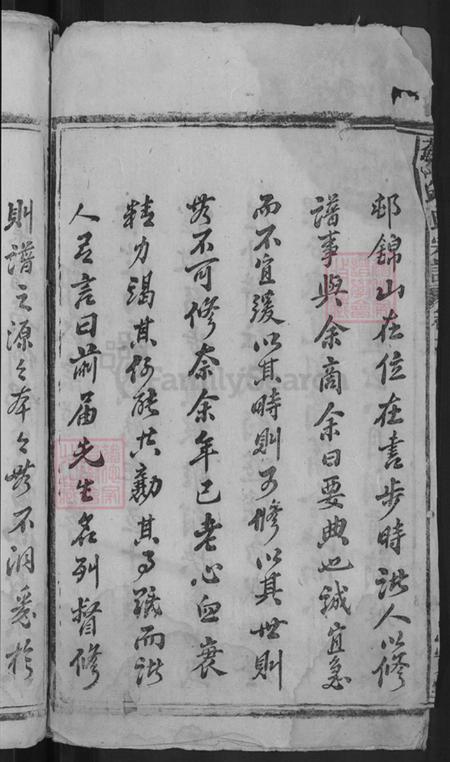 邨錦山在位在書步時諸人以修
譜事與余商余曰要典也誠宜急
而不宜緩以其時則可修以其世則
當不可修奈余年已老心血衰
精力渴其何能共勷其事職而諸
人另言曰前屆先生名列督修
則譜之源之本之無不洞悉於
FamilySearch